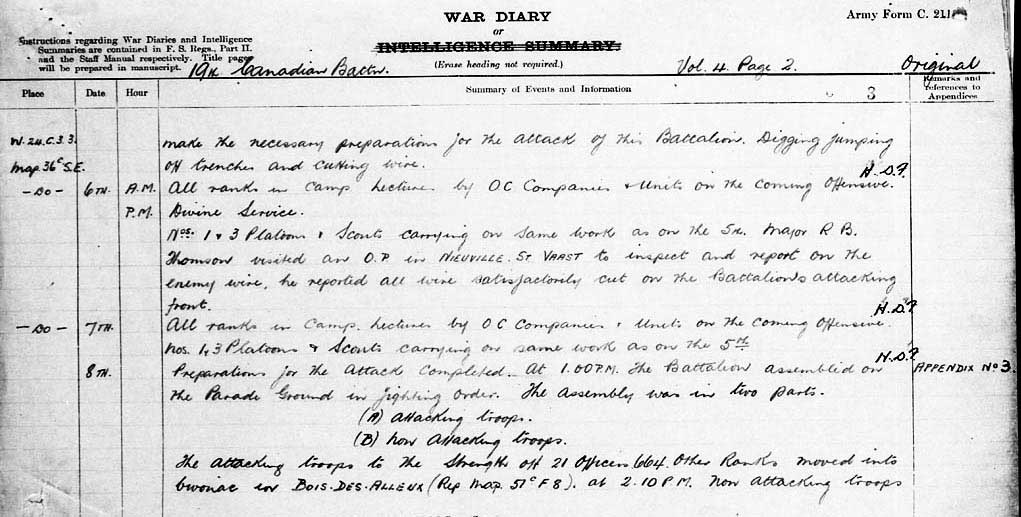 WAR DIARY
or
INTELLIGENCE SUMMARY.
(Erase heading not required.)
Army Form C. 211
Instructions regarding War Diaries and Intelligence
Summaries are contained in F. S. Regs., Part II.
and the Staff Manual respectively. Title page
will be prepared in manuscript.
19th Canadian Battn.
Vol. 4. Page 2.
Original
Place
Date
Hour
Summary of Events and Information
3
Remarks and
references to
Appendices
W.24.C.3.3.
Map 36c S.E.
make the necessary preparations for the attack of this Battalion. Digging jumping
off trenches and cutting wire.
H.D.F.
- DO - 6TH. A.M. All ranks in Camp. Lectures by OC Companies & Units on the coming Offensive.
P.M. Divine Service.
Nos. 1 & 3 Platoons & Scouts carrying on same work as on the 5th. Major R B.
Thomson visited an O.P. in NIEUVILLE. ST VAAST to inspect and report on the
enemy wire, he reported all wire satisfactorily cut on the Battalions attacking
front.
H.D.F.
- DO - 7TH. All ranks in Camp. Lectures by OC Companies & Units on the coming Offensive.
Nos. 1 & 3 Platoons & Scouts carrying on same work as on the 5TH
H.D.F.
8TH. Preparations for the Attack Completed. At 1.00 P.M. The Battalion assembled on
APPENDIX No 3.
the Parade Ground in fighting order. The assembly was in two parts.
(A) attacking troops.
(B) Non Attacking troops.
The attacking troops to the strength off 21 Officers 664. Other Ranks moved into
bivouac in BOIS-DES-ALLEUX (Ref Map. 51c F 8). at 2.10 P.M. Non attacking troops